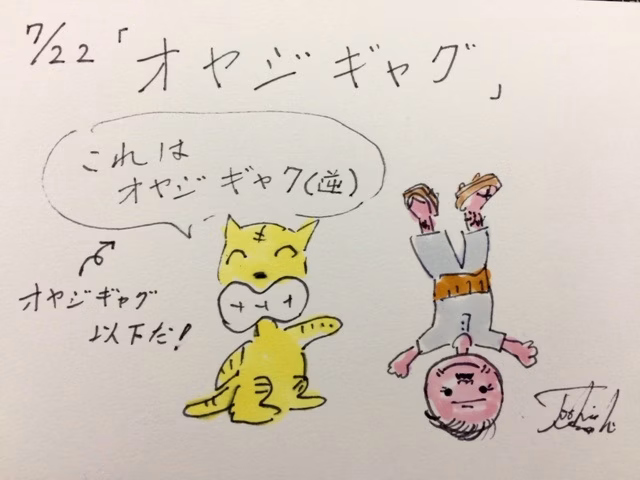 7/22「オヤジギャグ」
これは
オヤジギャク(逆)
オヤジギャグ
以下だ!